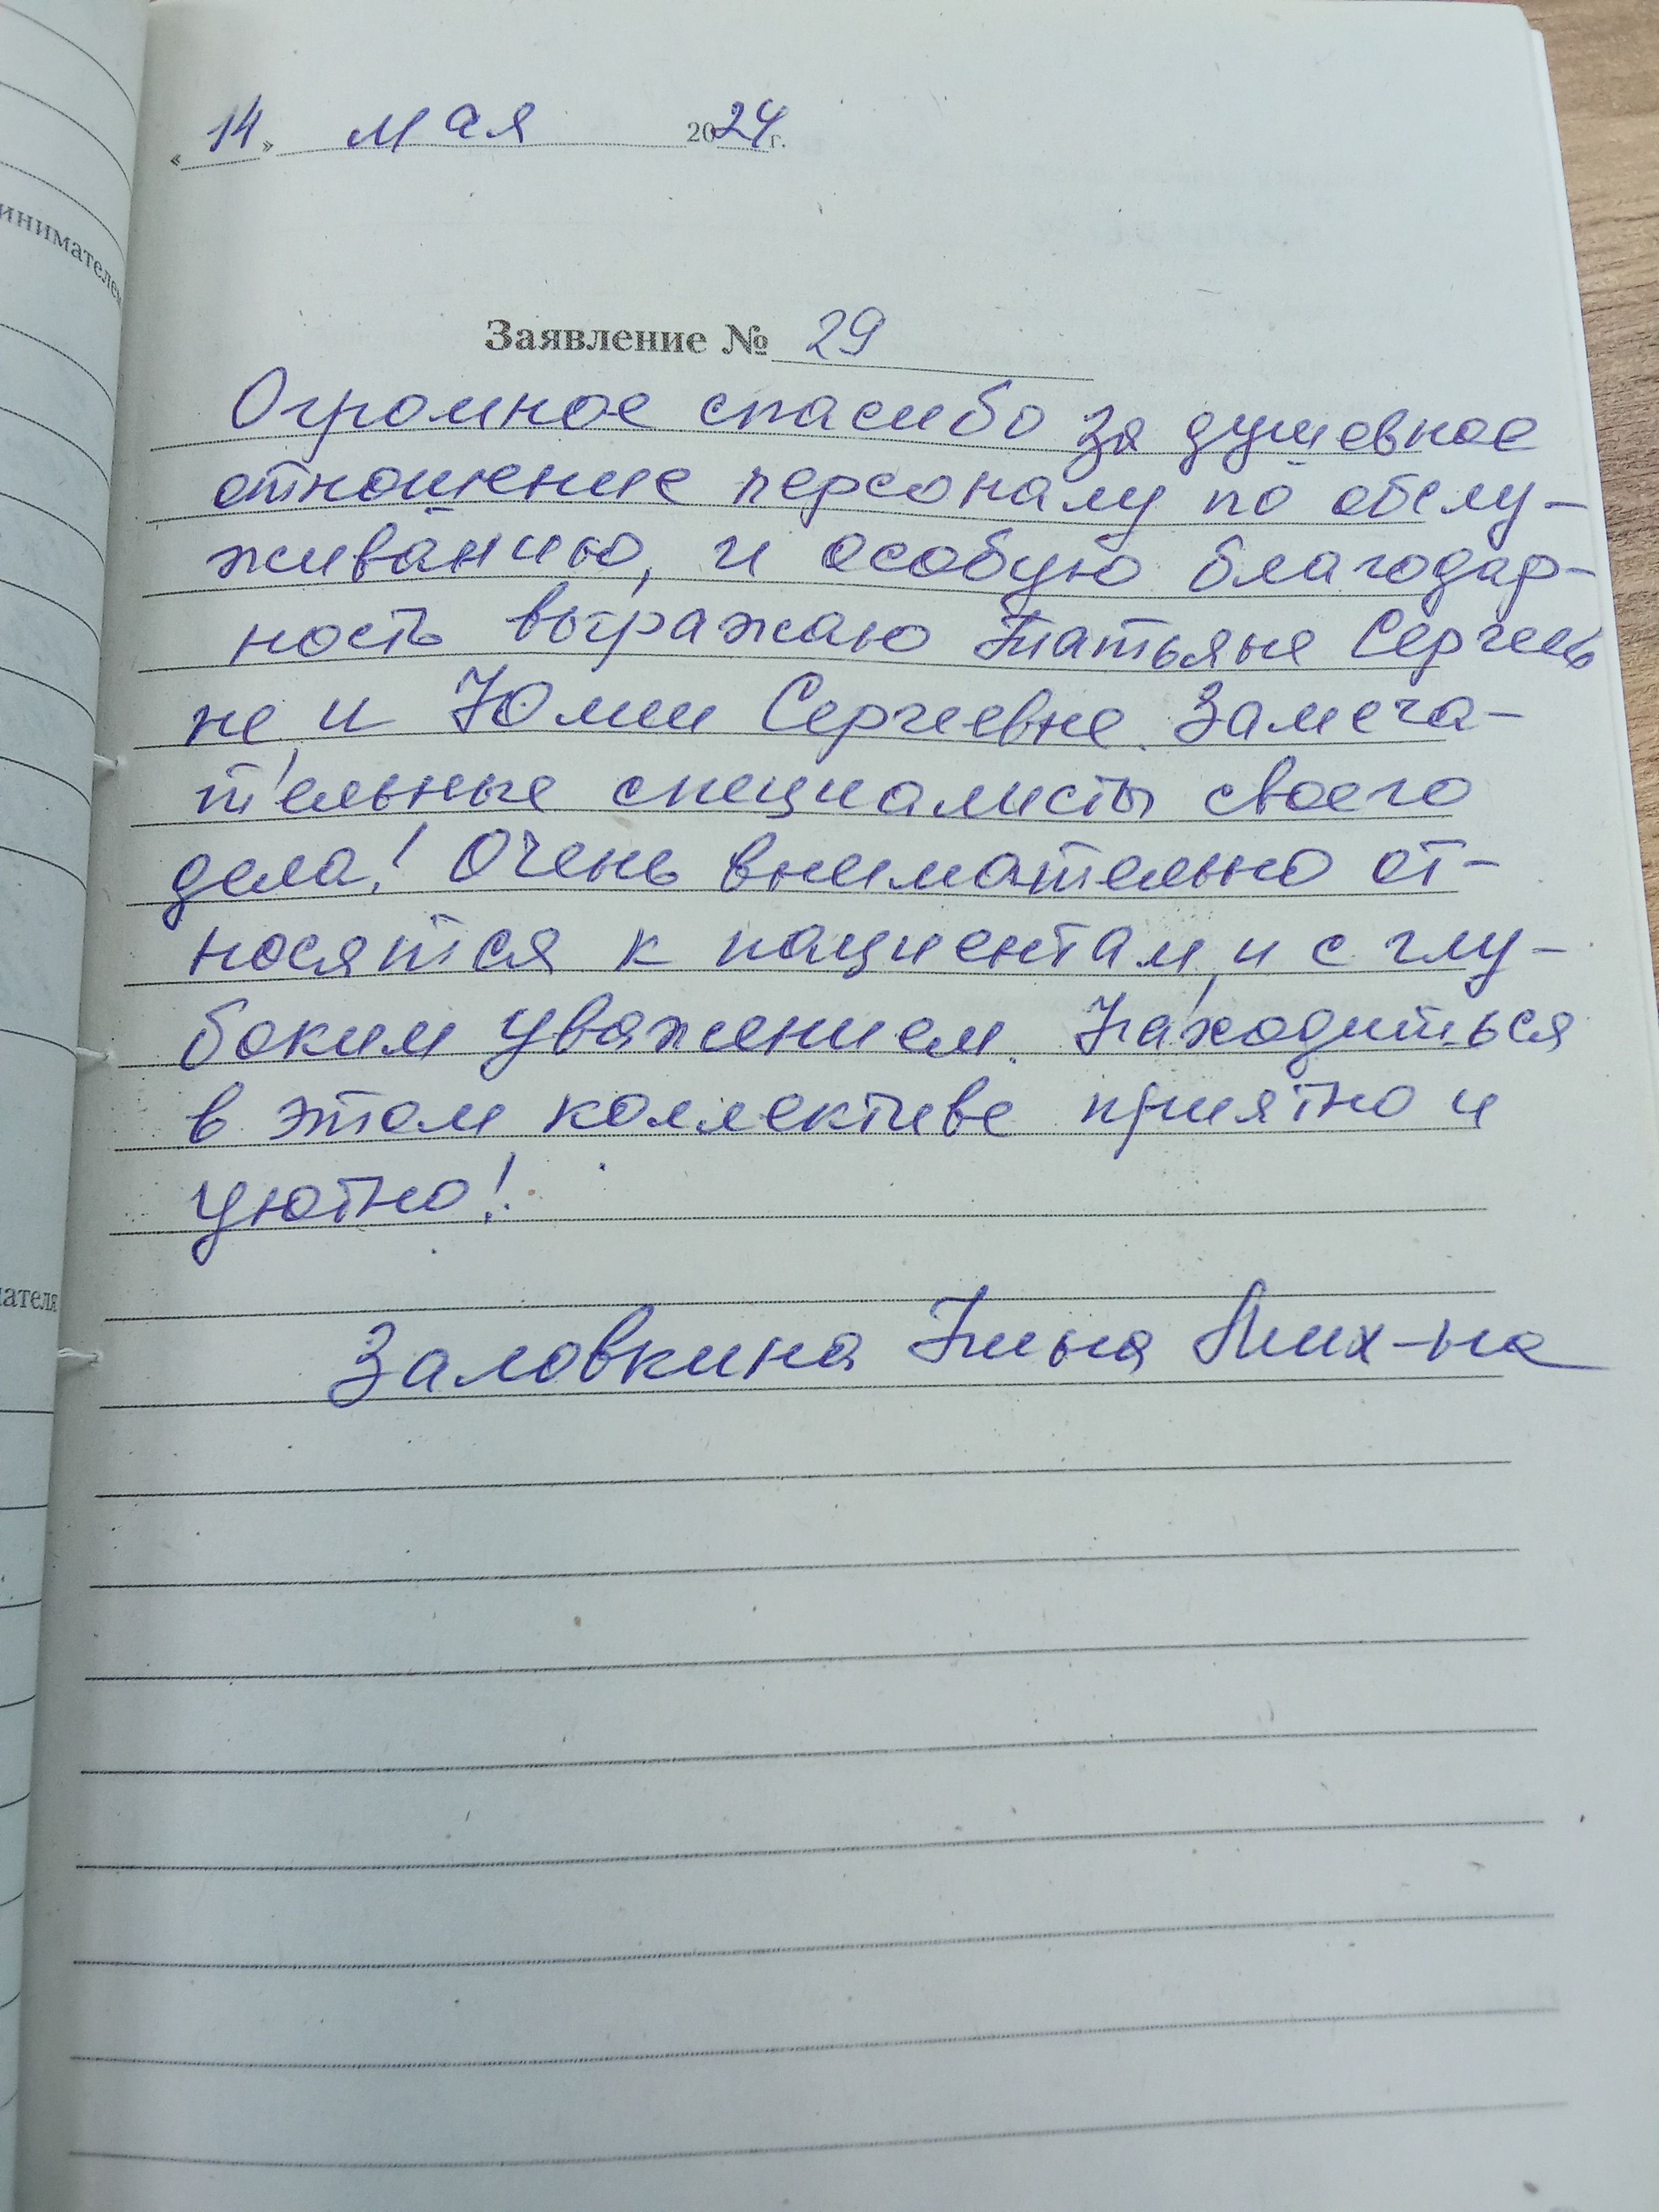 «14» мая 2024г.
инимателем
Заявление № 29
Огромное спасибо за душевное
отношение персоналу по обслу-
живанию, и особую благодар-
ность выражаю Татьяне Сергеев
не, и Юлии Сергеевне. Замеча-
тельные специалисты своего
дела! Очень внимательно от-
носятся к пациентам, и с глу-
боким уважением. Находиться
в этом коллективе приятно и
уютно!
ателя
Заловкина Нина Мих-на